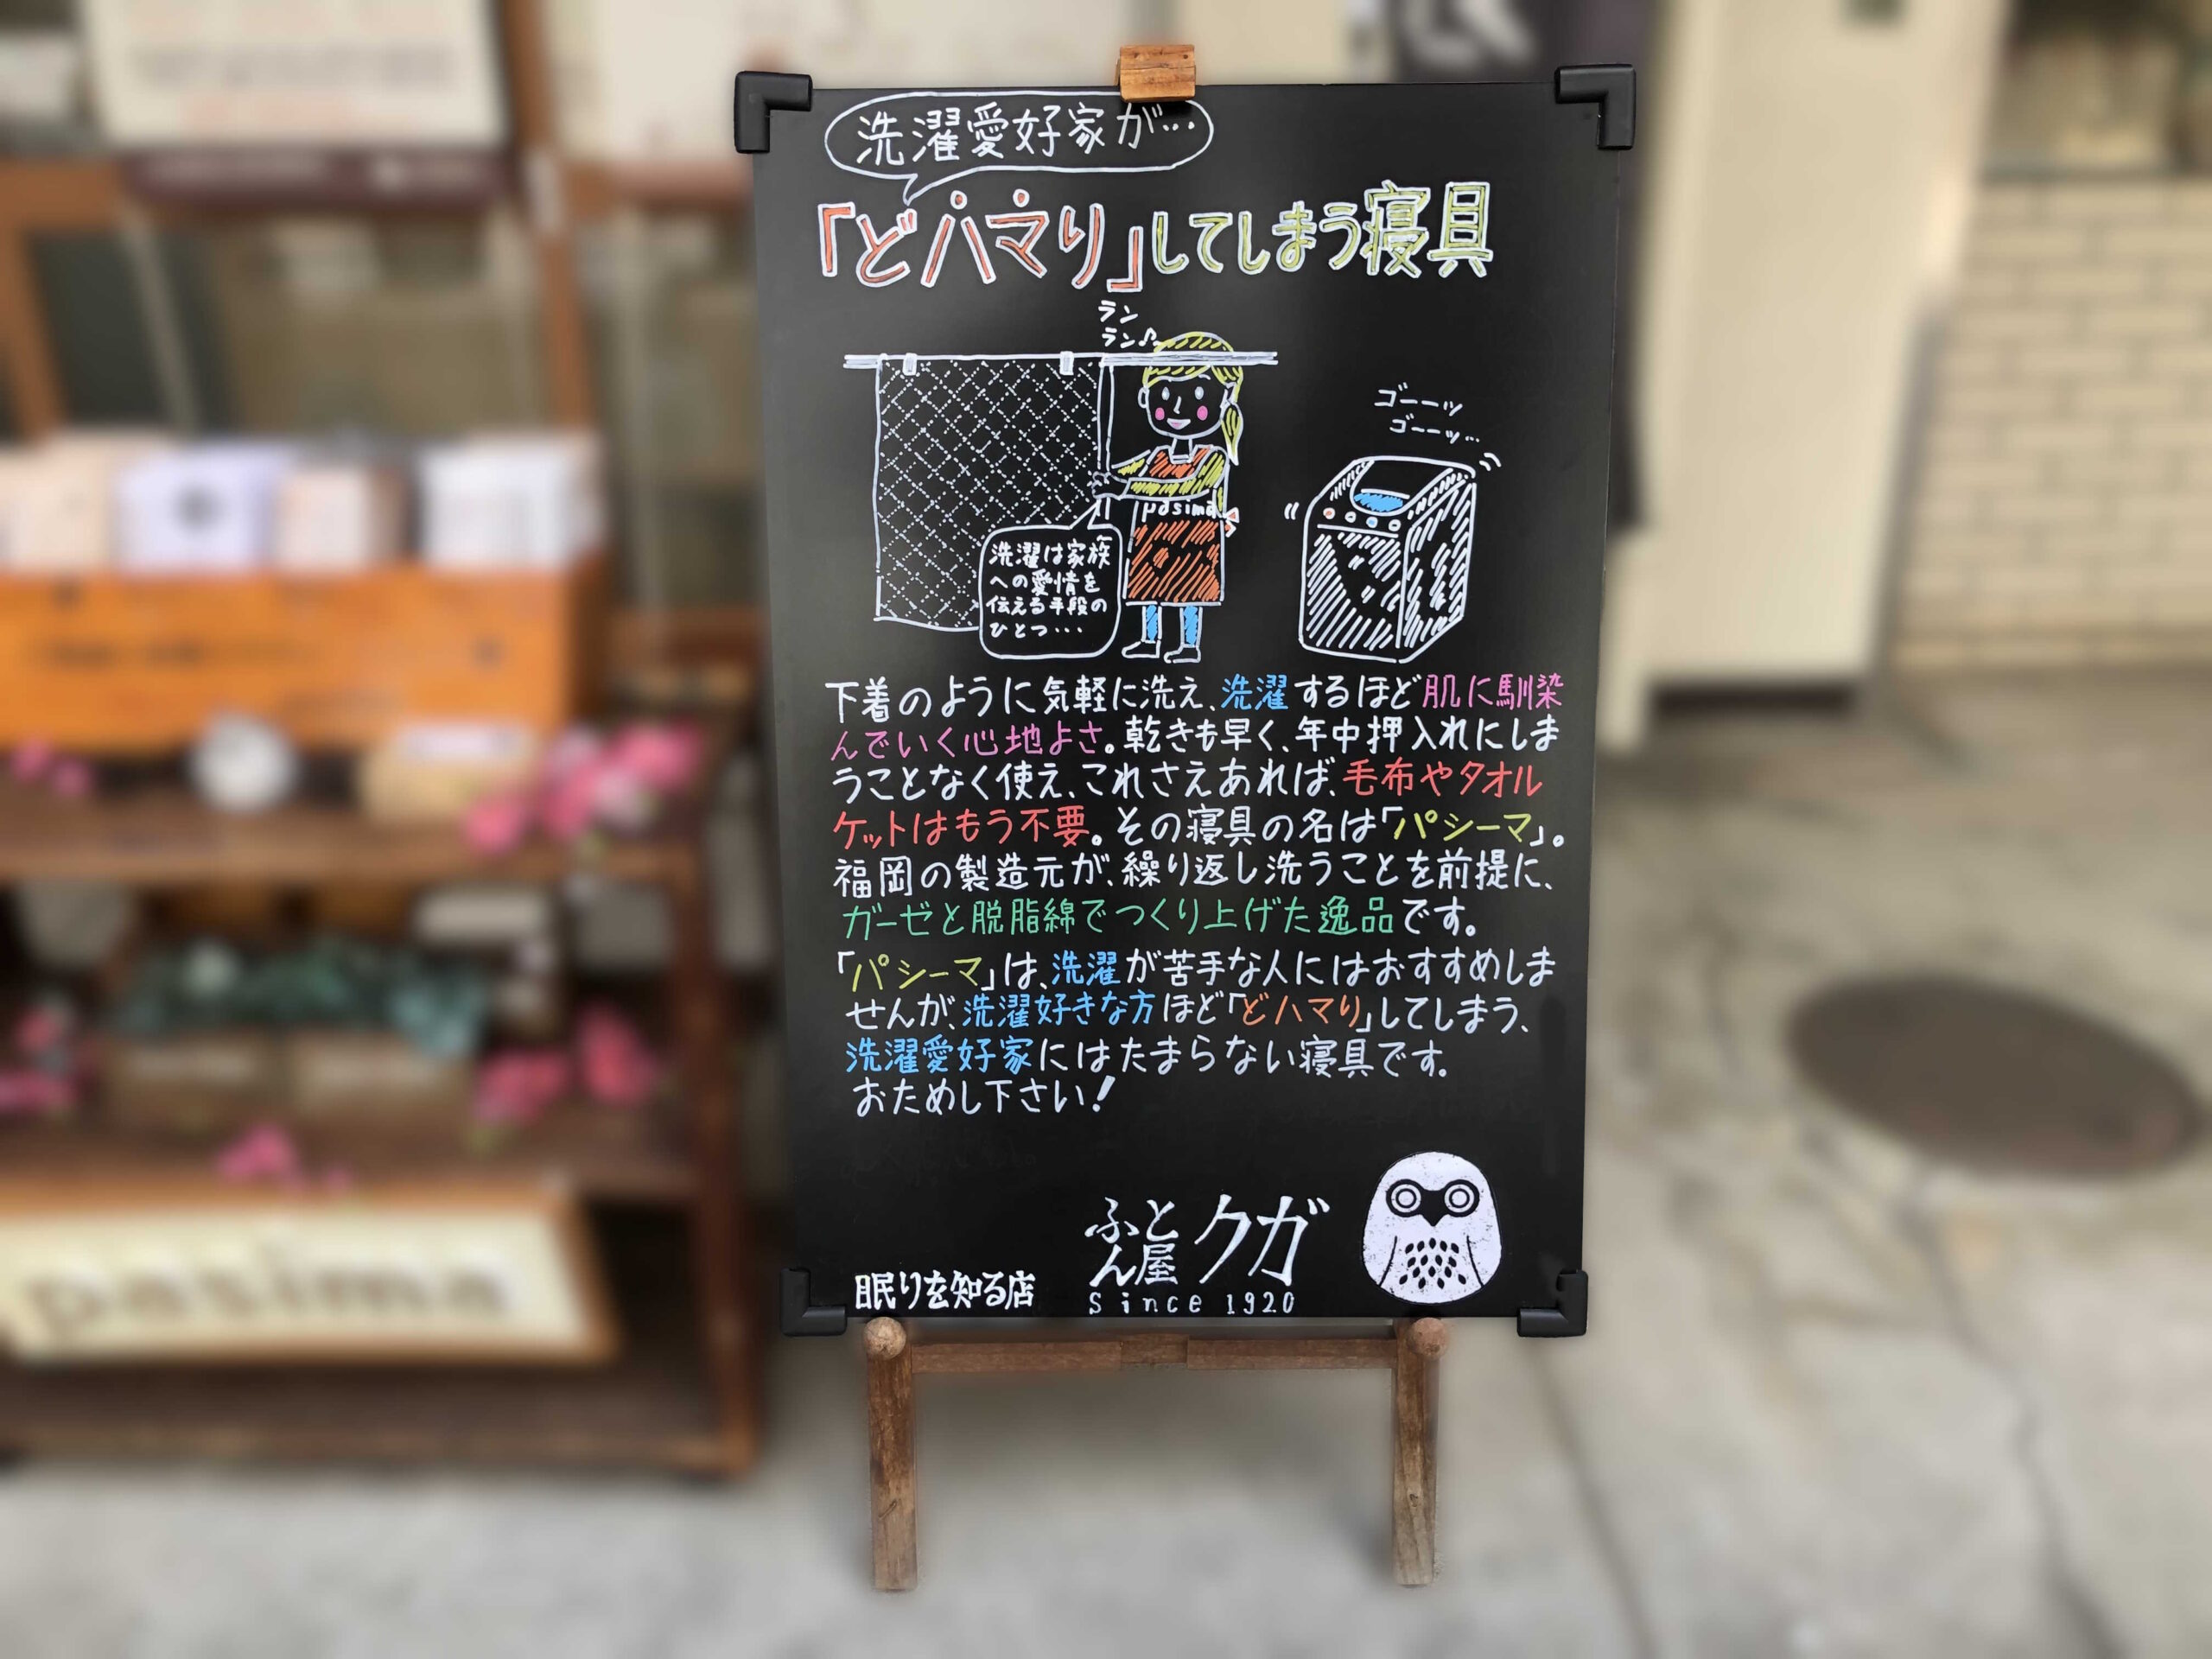 洗濯愛好家が…
「どハマり」してしまう寝具
ラン
ラン♪
ゴーーッ
ゴーーッ…
pasima
洗濯は家族
への愛情を
伝える手段の
ひとつ…
下着のように気軽に洗え、洗濯するほど肌に馴染
んでいく心地よさ。乾きも早く、年中押入れにしま
うことなく使え、これさえあれば、毛布やタオル
ケットはもう不要。その寝具の名は「パシーマ」。
福岡の製造元が、繰り返し洗うことを前提に、
ガーゼと脱脂綿でつくり上げた逸品です。
「パシーマ」は、洗濯が苦手な人にはおすすめしま
せんが、洗濯好きな方ほど「どハマり」してしまう、
洗濯愛好家にはたまらない寝具です。
おためし下さい!
眠りを知る店
ふとん屋クガ
Since 1920
pasima